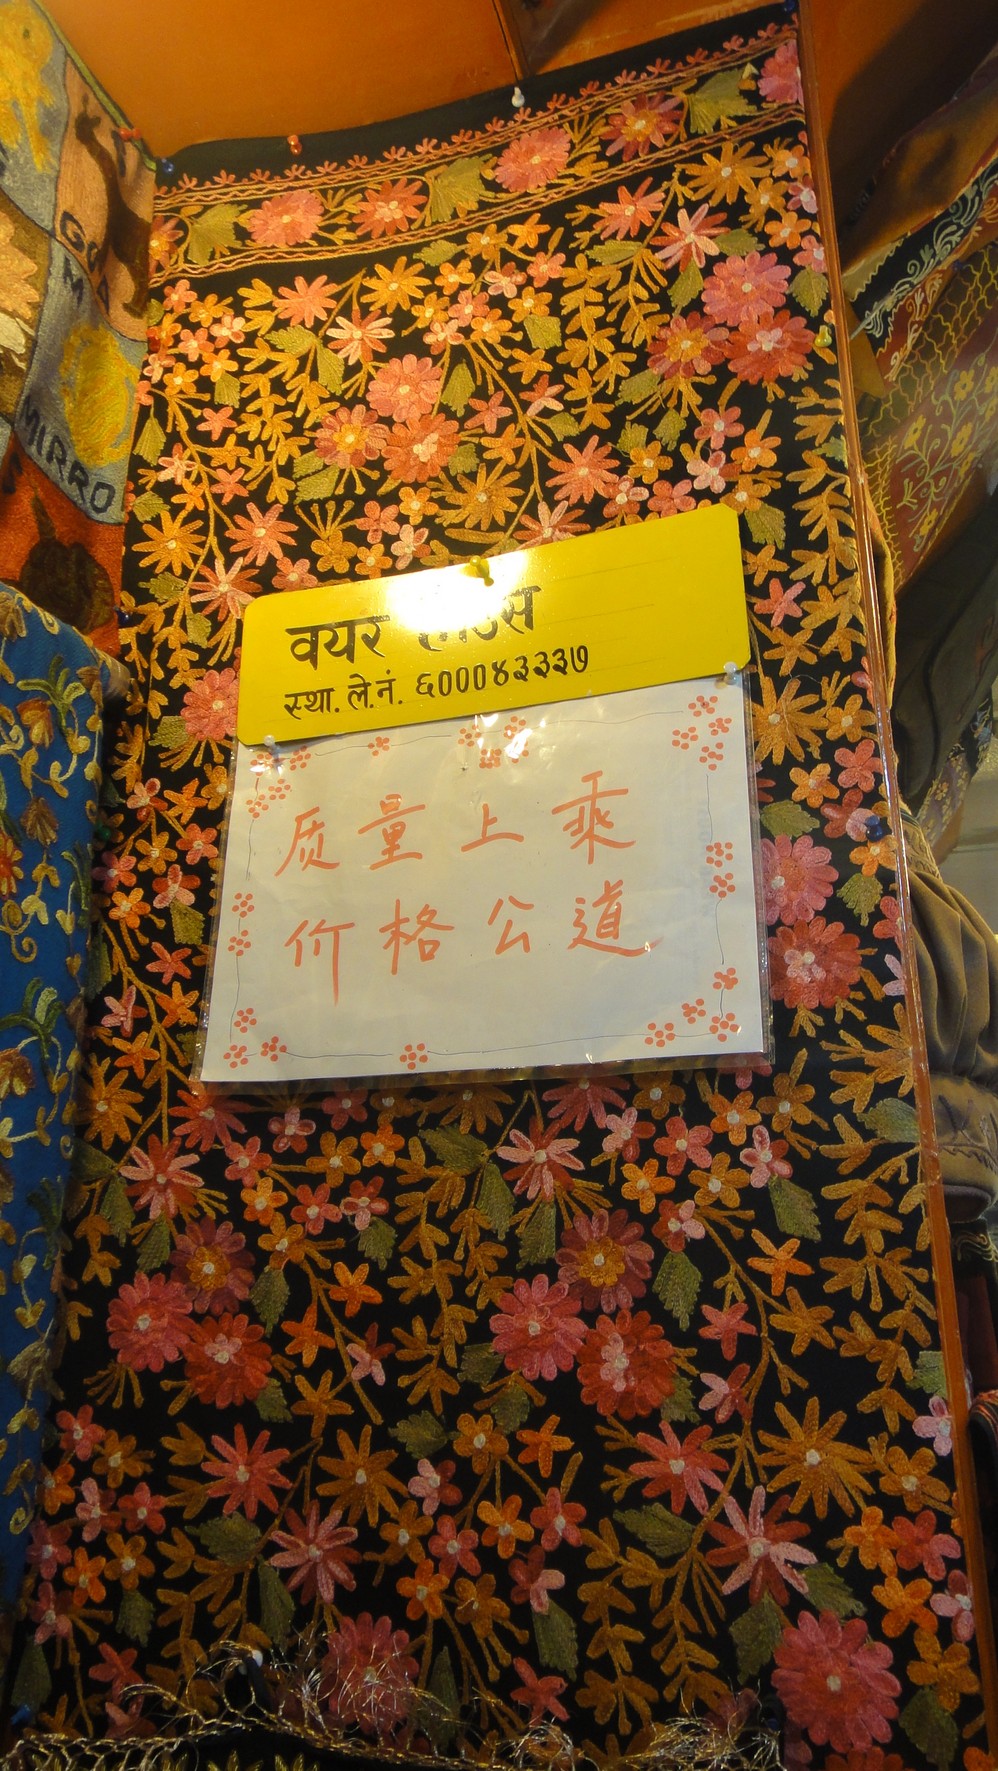 वयर हाउस
स्था. ले. नं. ६०००४३३३७
质量上乘
价格公道
MIRRO